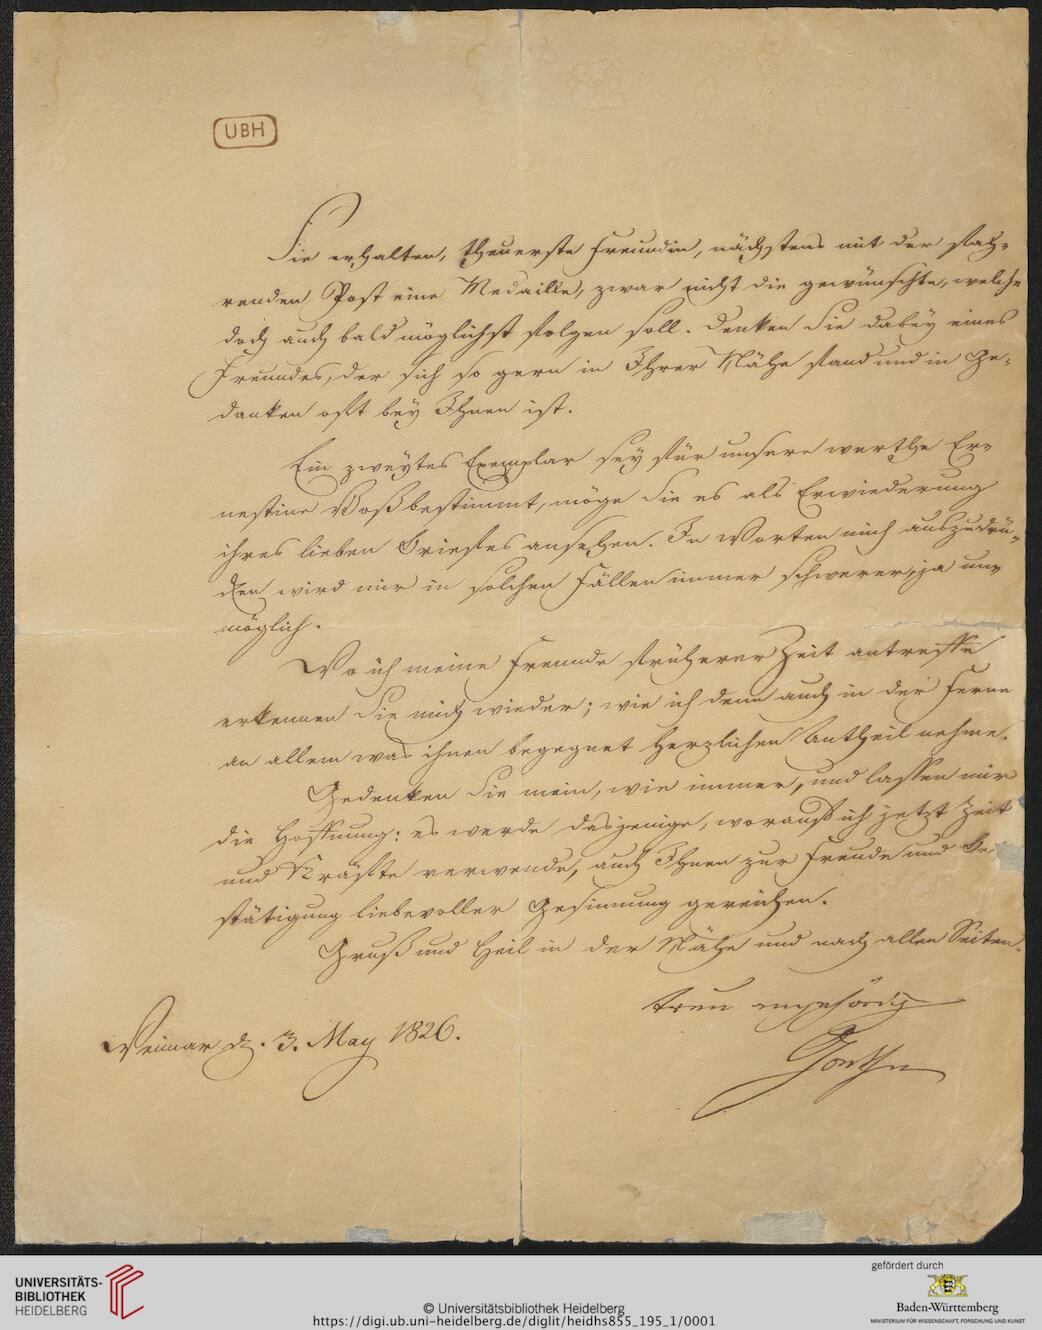 UBH
Sie erhalten, theuerste Freundin, nächstens mit der fah-
renden Post eine Medaille, zwar nicht die gewünschte, welche
doch auch bald möglichst folgen soll. Denken Sie dabey eines
Freundes, der sich so gern in Ihrer Nähe fand und in Ge-
danken oft bey Ihnen ist.
Ein zweytes Exemplar sey für unsere werthe Er-
nestine Voß bestimmt, möge Sie es als Erwiederung
ihres lieben Briefes ansehen. In Worten mich auszudrü-
cken wird mir in solchen Fällen immer schwerer, ja un-
möglich.
Wo ich meine Freunde früherer Zeit antreffe
erkennen Sie mich wieder; wie ich denn auch in der Ferne
an allem was ihnen begegnet herzlichen Antheil nehme.
Gedenken Sie mein, wie immer, und lassen mir
die Hoffnung: es werde dasjenige, worauf ich jetzt Zeit
und Kräfte verwende, auch Ihnen zur Freude und Be-
stätigung liebevoller Gesinnung gereichen.
Gruß und Heil in der Nähe und nach allen Seiten.
treu angehörig
Weimar d. 3. May 1826.
Goethe
UNIVERSITÄTS-
BIBLIOTHEK
HEIDELBERG
© Universitätsbibliothek Heidelberg
https://digi.ub.uni-heidelberg.de/diglit/heidhs855_195_1/0001
gefördert durch
Baden-Württemberg
MINISTERIUM FÜR WISSENSCHAFT, FORSCHUNG UND KUNST